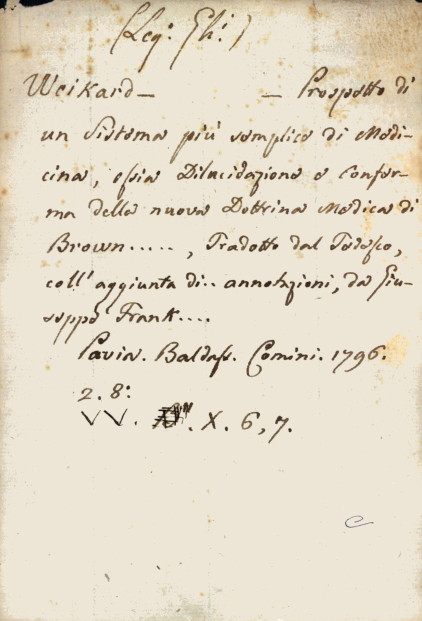 (Leg: Gh:)
Weikard — — Prospetto di
un Sistema più semplice di Medi-
cina, ossia Dilucidazione e confer-
ma della nuova Dottrina Medica di
Brown....., Tradotto dal Tedesco,
coll'aggiunta di.. annotazioni, da Giu-
seppe Frank....
Pavia. Baldass. Comini. 1796.
2. 8:
VV. . X. 6, 7.
C